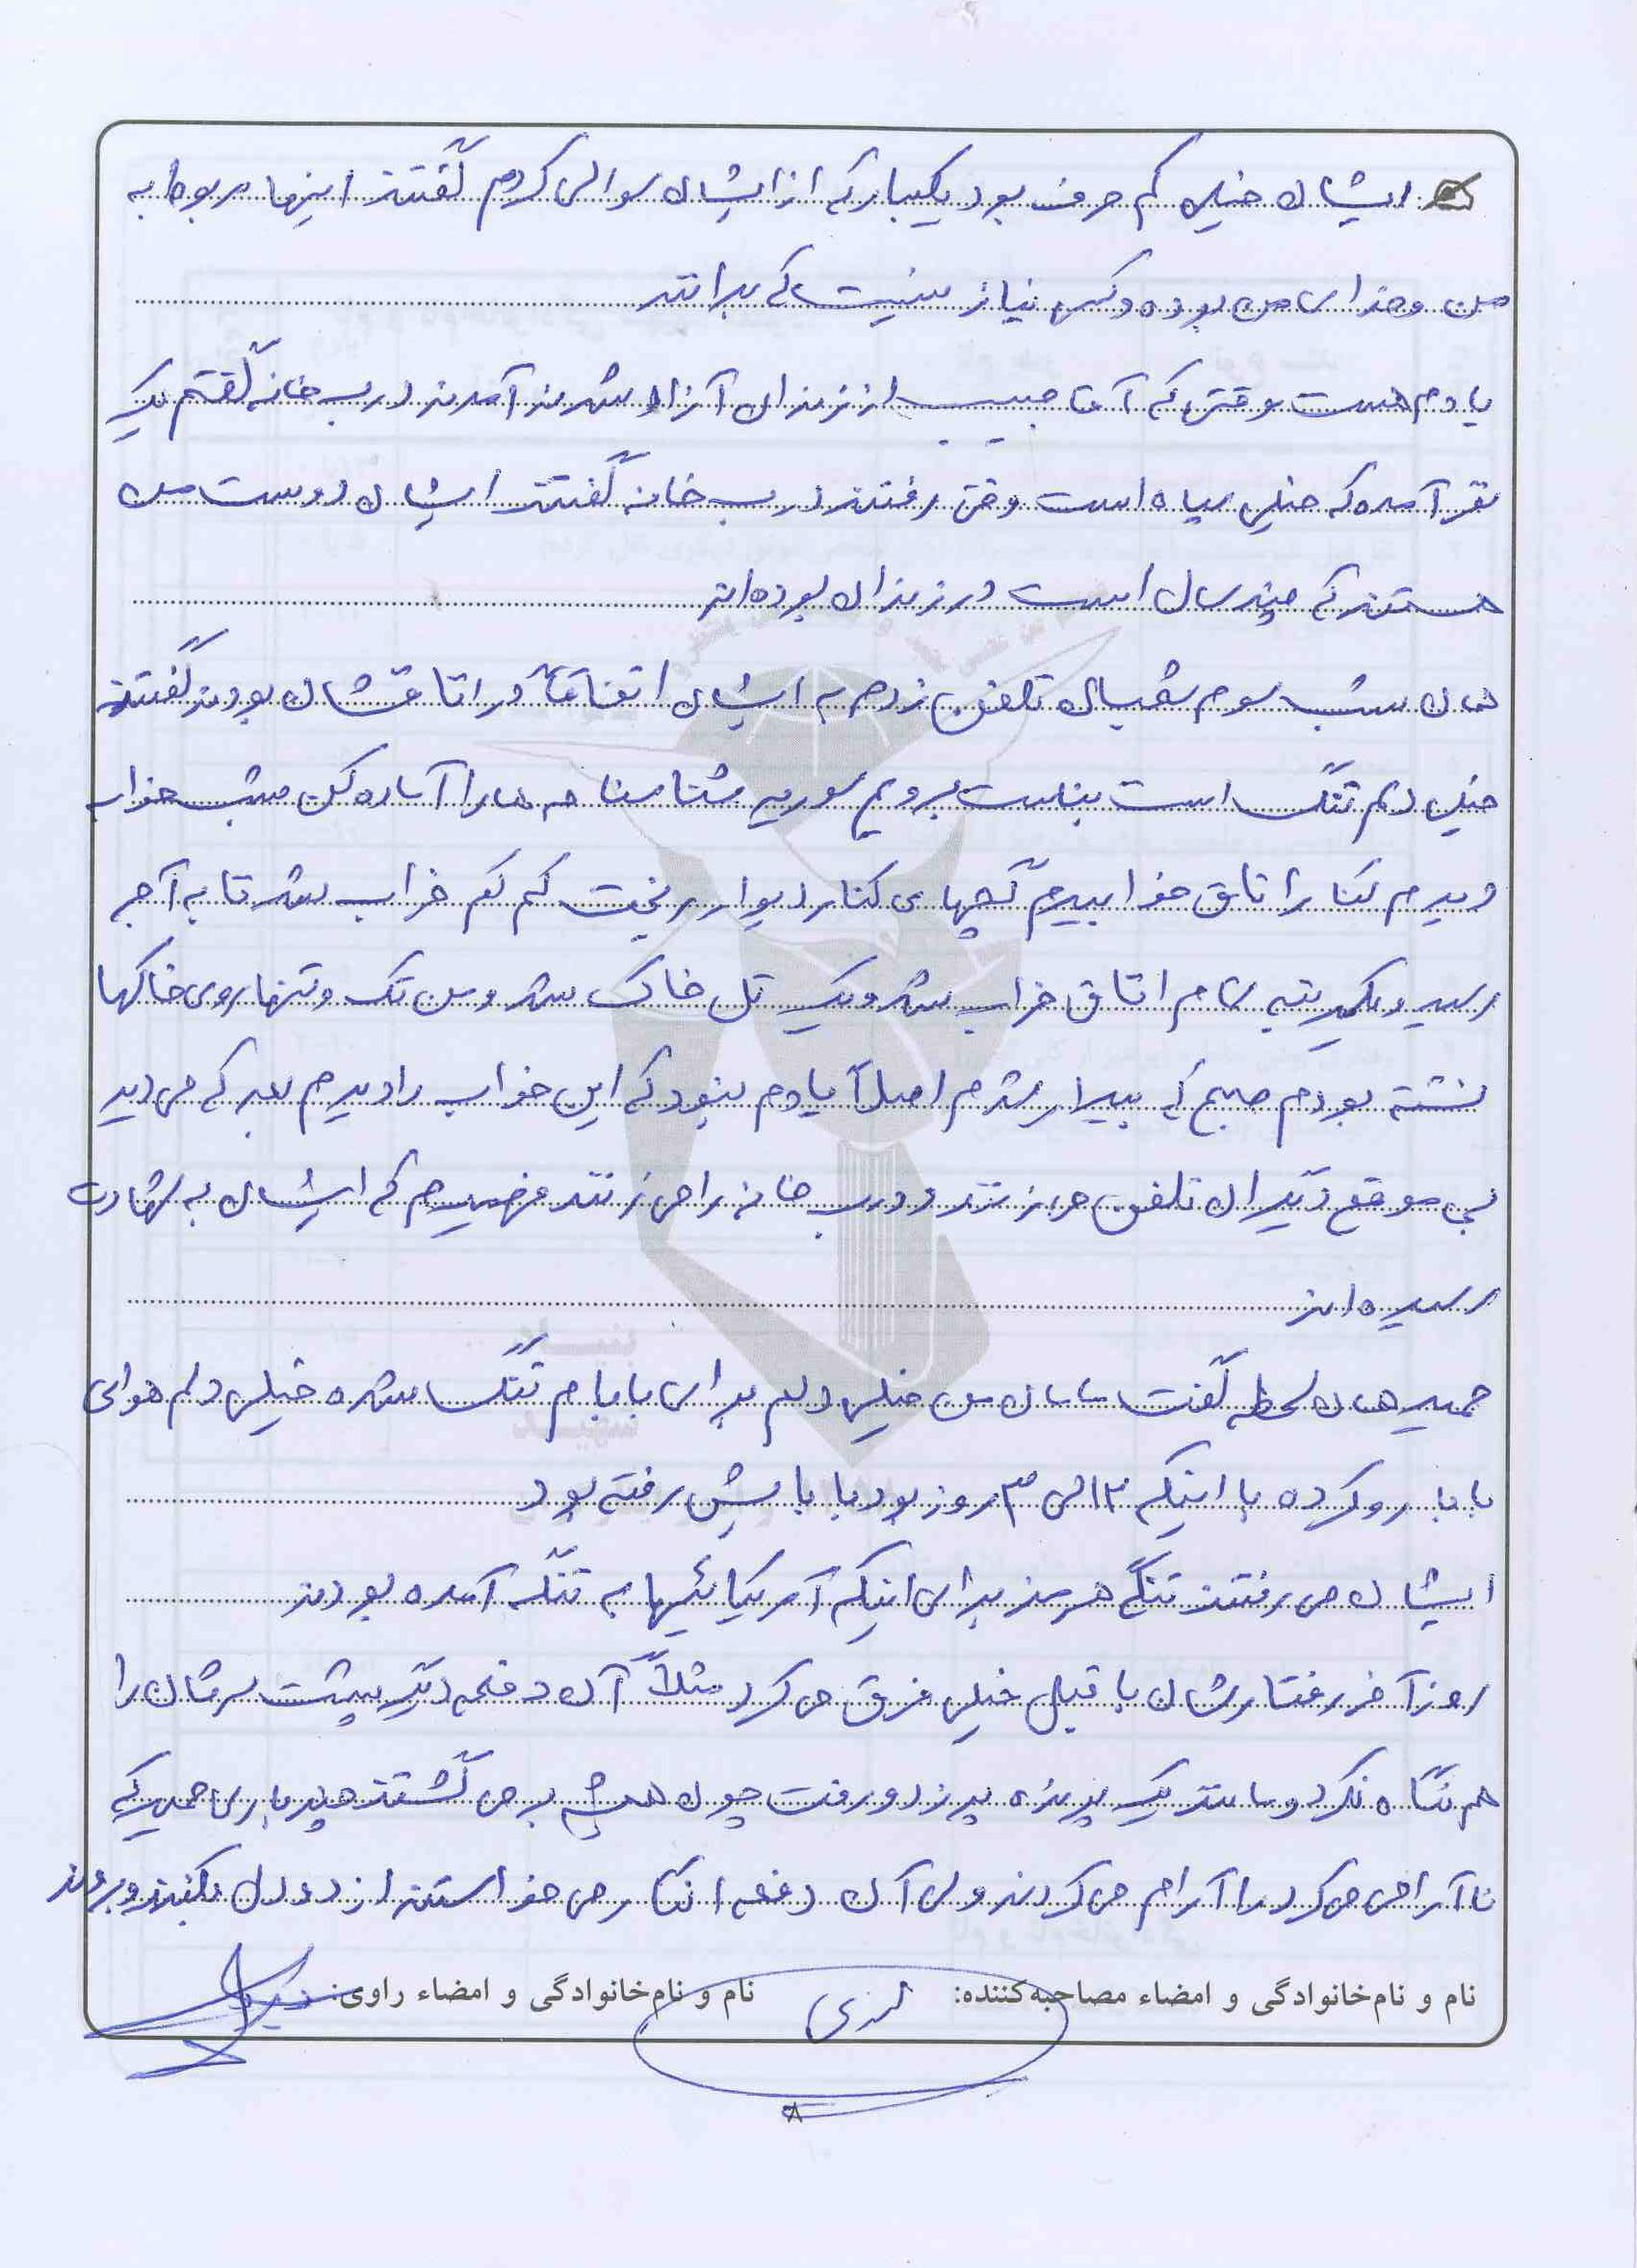 ایشان خیلی کم حرف بود یکبار که از ایشان سوالی کردم گفتند اینها مربوط به
من و خدای من بوده و کسی نیاز نیست که بداند
یادم هست وقتی که آقا حبیب از زندان آزاد شدند آمدند درب خانه گفتم یک
نفر آمده که خیلی سیاه است وقتی رفتند درب خانه گفتند ایشان دوست من
هستند که چند سال است در زندان بوده‌اند
همان شب سوم شعبان تلفن زدم به ایشان اتفاقاً در اتاقشان بودند گفتند
خیلی دلم تنگ است بناست برویم سوریه شناسنامه ها را آماده کن شب خواب
دیدم کنار اتاق خوابیدم گچهای کنار دیوار ریخت کم کم خراب شد تا به آجر
رسید و یکمرتبه تمام اتاق خراب شد و یک تل خاک شد و من تک و تنها روی خاکها
نشته بودم صبح که بیدار شدم اصلاً یادم نبود که این خواب را دیدم بعد که می دید
بی موقع دیگران تلفن می زنند و درب خانه را می زنند فهمیدم که ایشان به شهادت
رسیده اند
حمید همان لحظه گفت مامان من خیلی دلم برای بابام تنگ شده خیلی دلم هوای
بابا رو کرده با اینکه ۲ الی ۳ روز بود بابایش رفته بود
ایشان می رفتند تنگه هرمز برای اینکه آمریکائیها به تنگه آمده بودند
روز آخر رفتارشان با قبل خیلی فرق می کرد مثلاً آن دفعه دیگر پشت سرشان را
هم نگاه نکرد و مانند یک پرنده پر زد و رفت چون همیشه بر می گشتند چند باری حمید که
نا آرامی می کرد را آرام می کردند ولی آن دفعه انگار می خواستند از دو دل بکنند و بروند
نام و نام‌خانوادگی و امضاء مصاحبه‌کننده: نام و نام‌خانوادگی و امضاء راوی:
۸